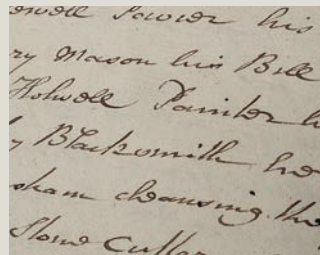 Sawier his
ry Mason his Bill
Holwell Painter h
y Blacksmith he
sham cleansing the
Stone Cutter